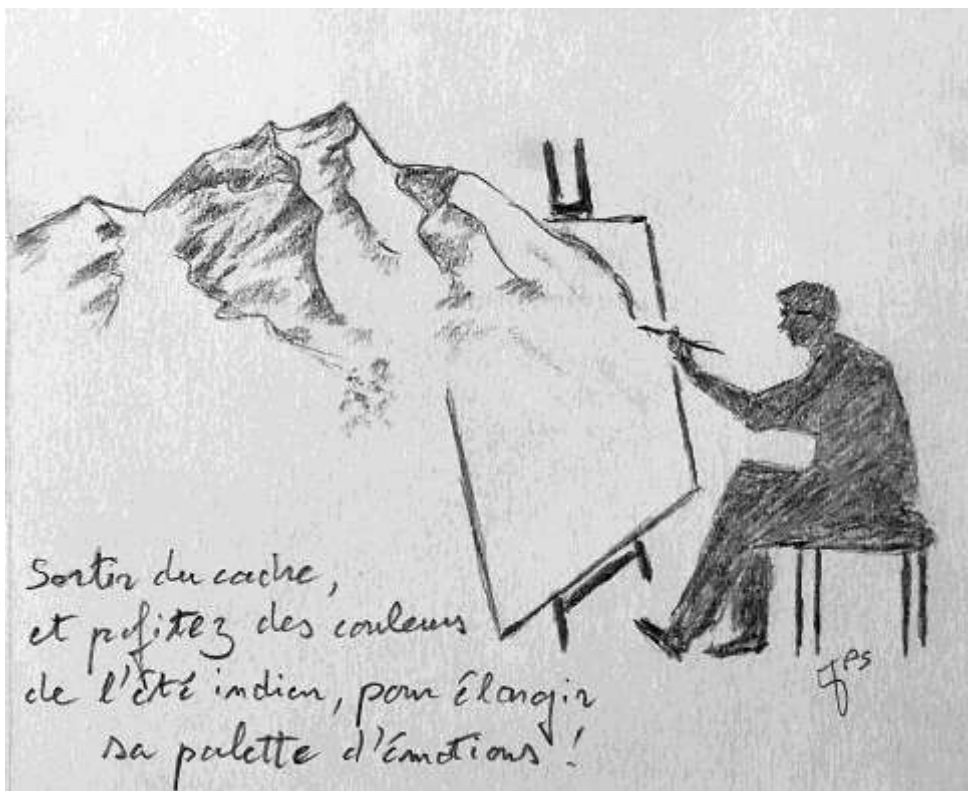 Sortir du cadre,
et profitez des couleurs
de l'été indien, pour élargir
sa palette d'émotions !